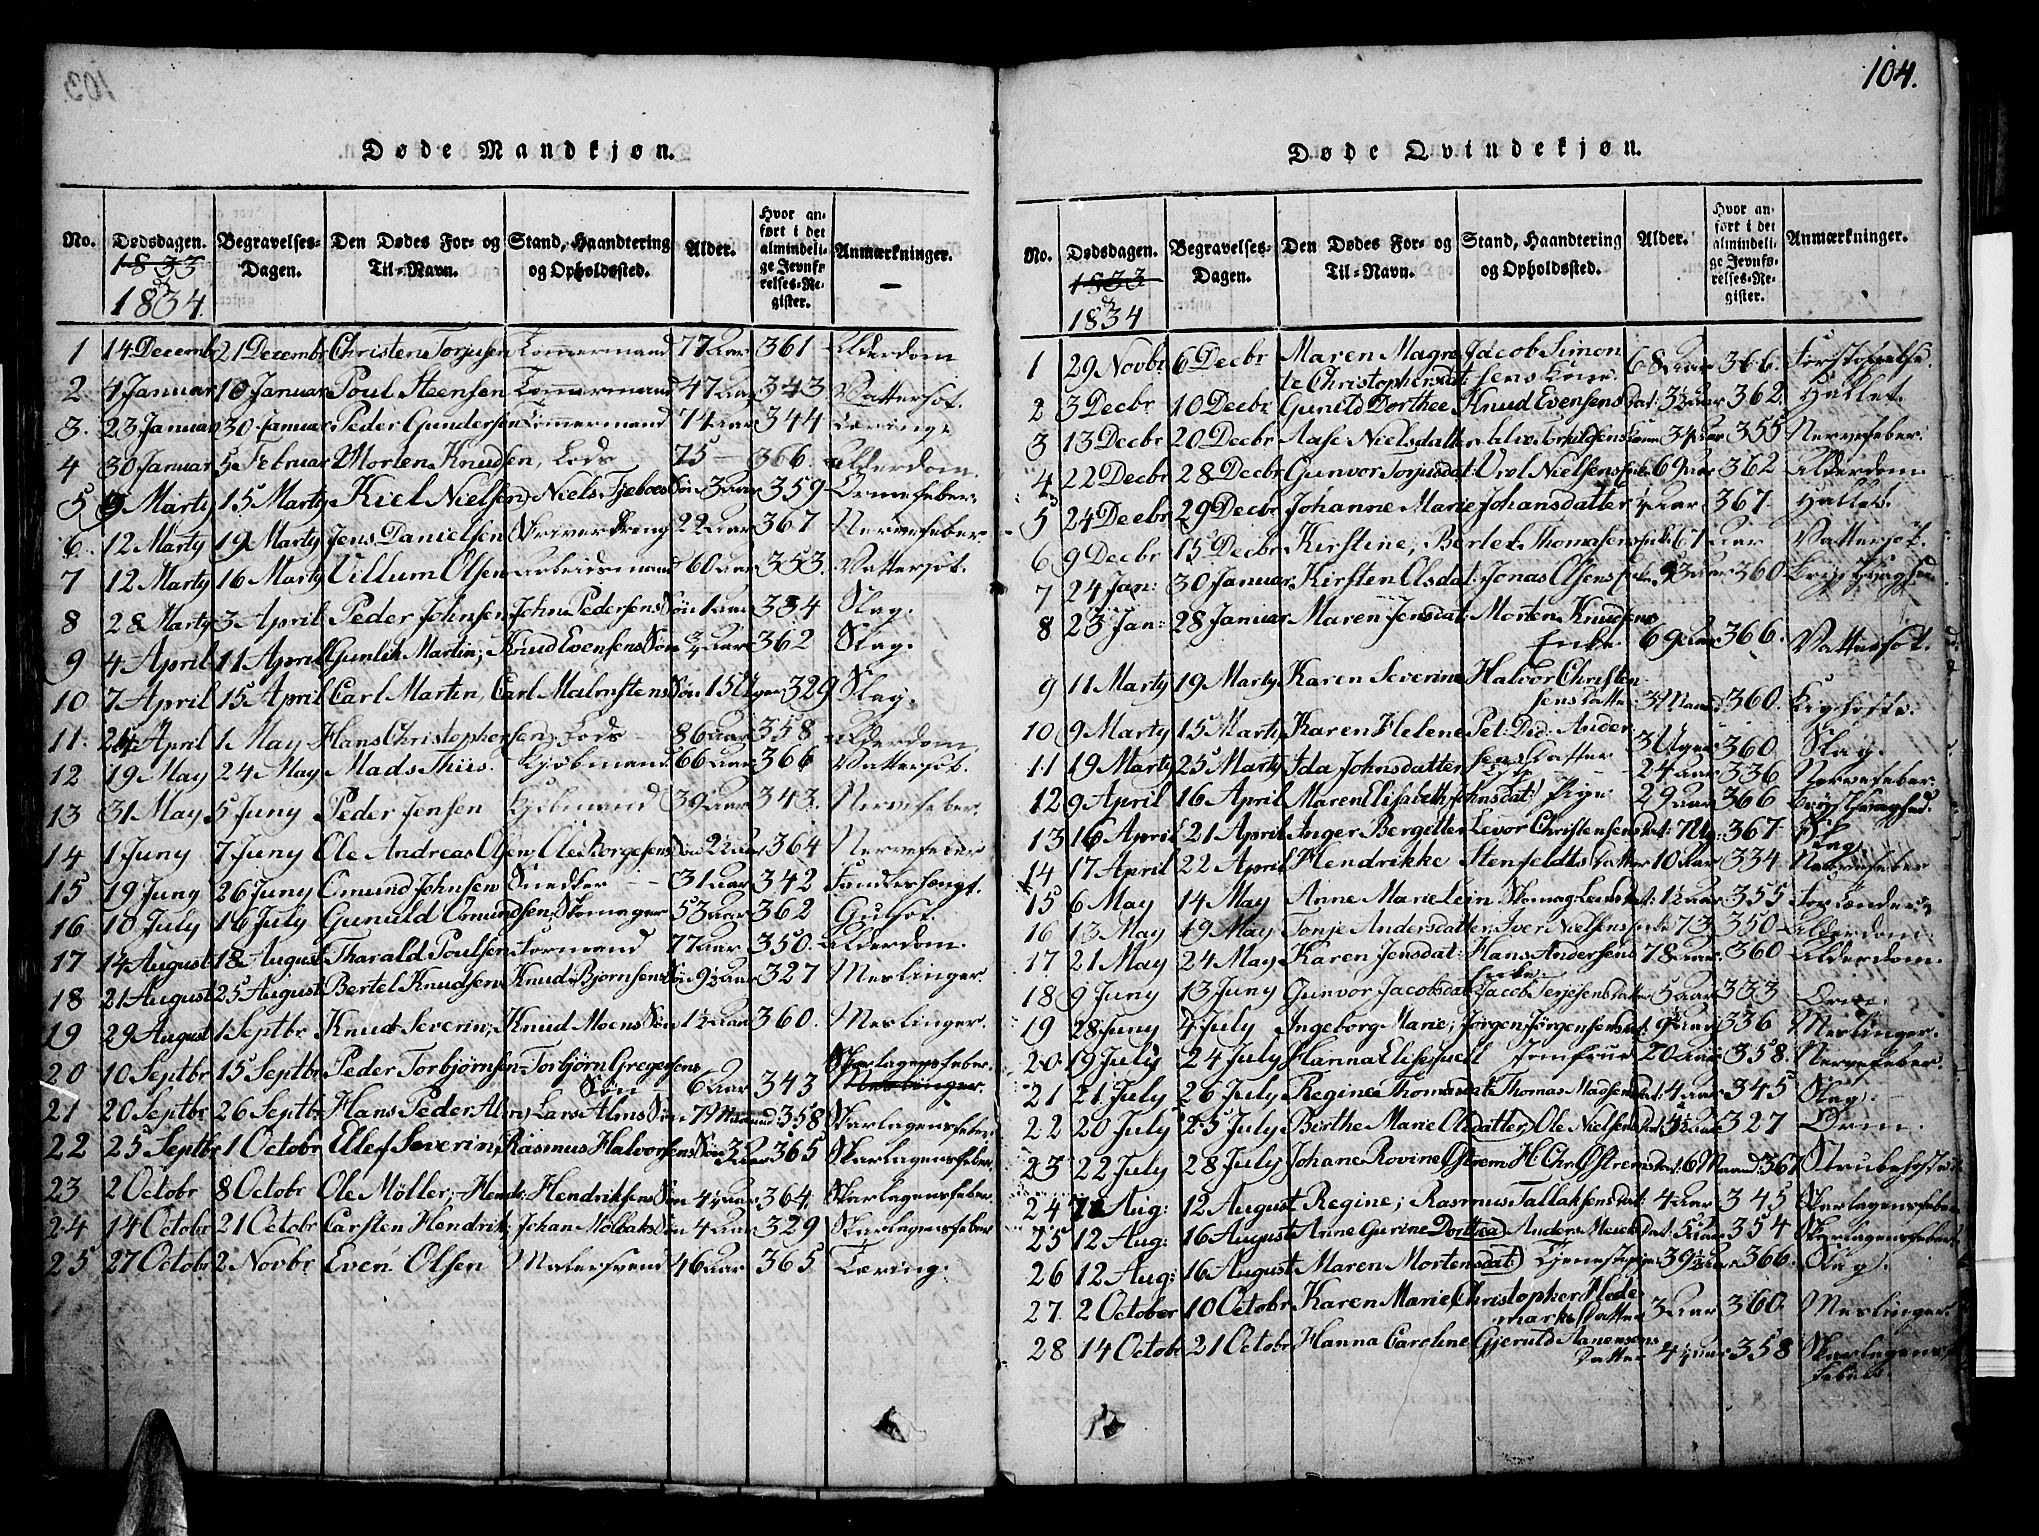 104.
Døde Mandkjøn.
No. Dødsdagen. 1833 1834. Begravelses-Dagen. Den Dødes For- og Til-Navn. Stand, Haandtering og Opholdssted. Alder. Hvor anført i det almindelige Jevnførelses-Register. Anmærkninger.
1 14 Decembr 21 Decembr Christen Torjusen Tømmermand 77 Aar 361 Alderdom
2 4 Januar 10 Januar Poul Steensen Tømmermand 47 Aar 343 Vattersot.
3. 23 Januar 30 Januar Peder Gundersen Tømmermand 74 Aar 344 Tæring
4 30 Januar 5 Februar Morten Knudsen, Lods 75 — 366. Alderdom
5 9 Marty 15 Marty Kiel Nielsen, Niels Søn 3 Aar 359 Ormefeber
6. 12 Marty 19 Marty Jens Danielsen Skriverdreng 22 Aar 367 Nervefeber
7 12 Marty 16 Marty Villum Olsen Arbeidsmand 60 Aar 353. Vattersot.
8 28 Marty 3 April Peder Johnsen John Pedersens Søn 1 Aar 334 Slag.
9 4 April 11 April Gunlik Martin, Knud Evensens Søn ¾ Aar 362 Slag.
10 7 April 15 April Carl Martin, Carl Malmstens Søn 15 Uger 329 Slag.
11. 24 April 1 May Hans Christophersen, Lods 86 Aar 358 Alderdom
12 19 May 24 May Mads Thiis. Kjøbmand 66 Aar 366 Vattersot.
13 31 May 5 Juny Peder Jensen Kjøbmand 39 Aar 343. Nervefeber.
14 1 Juny 7 Juny Ole Andreas Olsen, Ole Søn 2½ Aar 364 Nervefeber
15 19 Juny 26 Juny Omund Johnsen Snedker 31 Aar 342
16 10 July 16 July Gunuld Omundsen, Skomager 53 Aar 362 Gulsot.
17 14 August 18 August Tharald Poulsen Formand 77 Aar 350. Alderdom.
18 21 August 25 August Bertel Knudsen Knud Bjørnsens Søn 9½ Aar 327 Meslinger
19 29 August 1 Septbr Knud Severin, Knud Moens Søn 1½ Aar 360. Meslinger.
20 10 Septbr 15 Septbr Peder Torbjørnsen Torbjørn Gregersens Søn 6 Aar 343 Skarlagensfeber Meslinger.
21 20 Septbr 26 Septbr Hans Peder Alm, Lars Alms Søn 7 Maaned 358 Skarlagensfeber
22 25 Septbr 1 Octobr Ellef Severin, Rasmus Halvorsens Søn 3 Aar 365 Skarlagensfeber
23 2 Octobr 8 Octobr Ole Möller, Hendr: Hendriksens Søn 4½ Aar 364. Skarlagensfeber
24 14 Octobr 21 Octobr Carsten Hendrik, Johan Molbaks Søn 4 Aar 329 Skarlagensfeber
25 27 Octobr 2 Novbr Even Olsen Malersvend 46 Aar 365 Tæring.
Døde Qvindekjøn.
No. Dødsdagen. 1833 1834 Begravelses-Dagen. Den Dødes For- og Til-Navn. Stand, Haandtering og Opholdssted. Alder. Hvor anført i det almindelige Jevnførelses-Register. Anmærkninger.
1 29 Novbr 6 Decbr Maren Magrete Christophersdat: Jacob Simonsens Kone. 68 Aar 366. Forstoppelse.
2 3 Decbr 10 Decbr Gunild Dorthee Knud Evensens Dat: 3½ Aar 362. Hallet.
3 13 Decbr 20 Decbr Aase Nielsdatter Kone 34 Aar 355 Nervefeber.
4 22 Decbr 28 Decbr Gunvor Torjusdat: Nielsens Enke 69 Aar 362 Alderdom.
5 24 Decbr 29 Decbr Johanne Marie Johansdatter Aar 367. Hallet.
6 9 Decbr 15 Decbr Kirstine, Berlet Thomasens Enke 61 Aar Vattersot.
7 24 Jan: 30 Januar Kirsten Olsdat: Jonas Olsens Aar 360
8 23 Jan: 28 Januar Maren Jensdat: Morten Knudsens Enke 69 Aar 366. Vattersot.
9 11 Marty 19 Marty Karen Severine Halvor Christensens Datter 3 Maaned 360. Kighoste.
10 9 Marty 15 Marty Karen Helene Pet: Did: Andersens Datter 3 Uger 360 Slag.
11 19 Marty 25 Marty Ida Johnsdatter 24 Aar 336 Nervefeber.
12 9 April 16 April Maren Elisabeth Johnsdat: Pige 29 Aar 366 Brystsvaghed.
13 16 April 21 April Inger Bergette Levor Christensens Dat: 7 Ug: 367. Slag
14 17 April 22 April Hendrikke Stenfeldts Datter 10 Aar 334 Nervefeber
15 6 May 14 May Anne Marie Lein Skomag: Leins Dat: 1½ Aar 355
16 13 May 19 May Tonje Andersdatter, Iver Nielsens Enke 73, 350 Alderdom.
17 21 May 24 May Karen Jensdat: Hans Andersens Enke 78 Aar 360 Alderdom.
18 9 Juny 13 Juny Gunvor Jacobsdat: Jacob Terjesens Datter 5 Aar 333 Orm.
19 28 Juny 4 July Ingeborg Marie, Jørgen Jørgensens Dat: 9 Aar 336 Meslinger.
20 19 July 24 July Hanna Elise Juell Jomfrue 20 Aar 358. Nervefeber.
21 21 July 26 July Regine Thomasdat: Thomas Madsens Dat: 4 Aar 345 Slag.
22 20 July 25 July Birthe Marie Olsdatter, Ole Nielsens Dat: 1½ Aar 327 Orm.
23 22 July 28 July Johane Rovine Ostrem H. Chr. Ostrems Dat: 6 Maaned 367 Strubehoste
24 7 Aug: 12 August Regine, Rasmus Tallaksens Dat: 4 Aar 345 Skarlagensfeber
25 12 Aug: 16 August Anne Gurine Dorthea Anders Meuks Dat: 5½ Aar 354 Skarlagensfeber
26 12 Aug: 16 August Maren Mortensdat: Tjenestepige 39½ Aar 366. Slag.
27. 2 October 10 Octobr Karen Marie Christopher Hedemarks Datter 3 Aar 360 Meslinger.
28 14 Octobr 21 Octobr Hanna Caroline Gjeruld Aanensens Datter 4½ Aar 358 Skarlagensfeber.